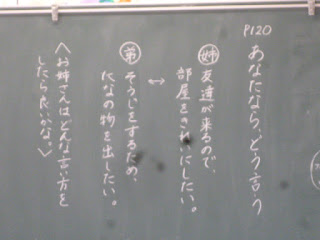 P120
あなたなら、どう言う
姉 友達が来るので、
部屋をきれいにしたい。
↔
弟 そうじをするため、
たなの物を出したい。
〈お姉さんはどんな言い方を
したら良いかな。〉